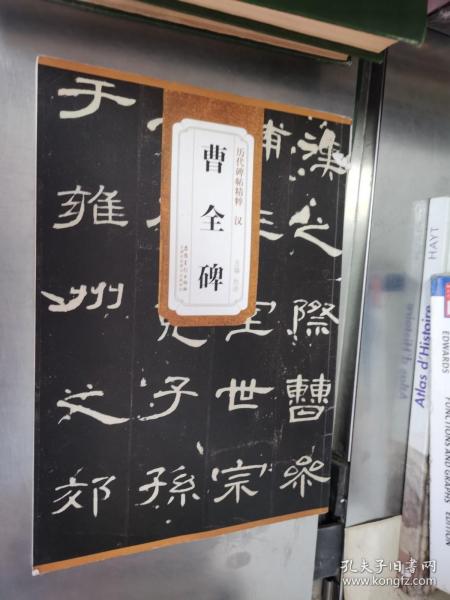 历代碑帖精粹 汉
曹全碑
漢之際曹參
室世宗
子孫
于雍州之郊
HAYT
Atlas d'Histoire
EDWARDS
FUNCTIONS AND GRAPHS
EDITION
孔夫子旧书网
www.kongfz.com